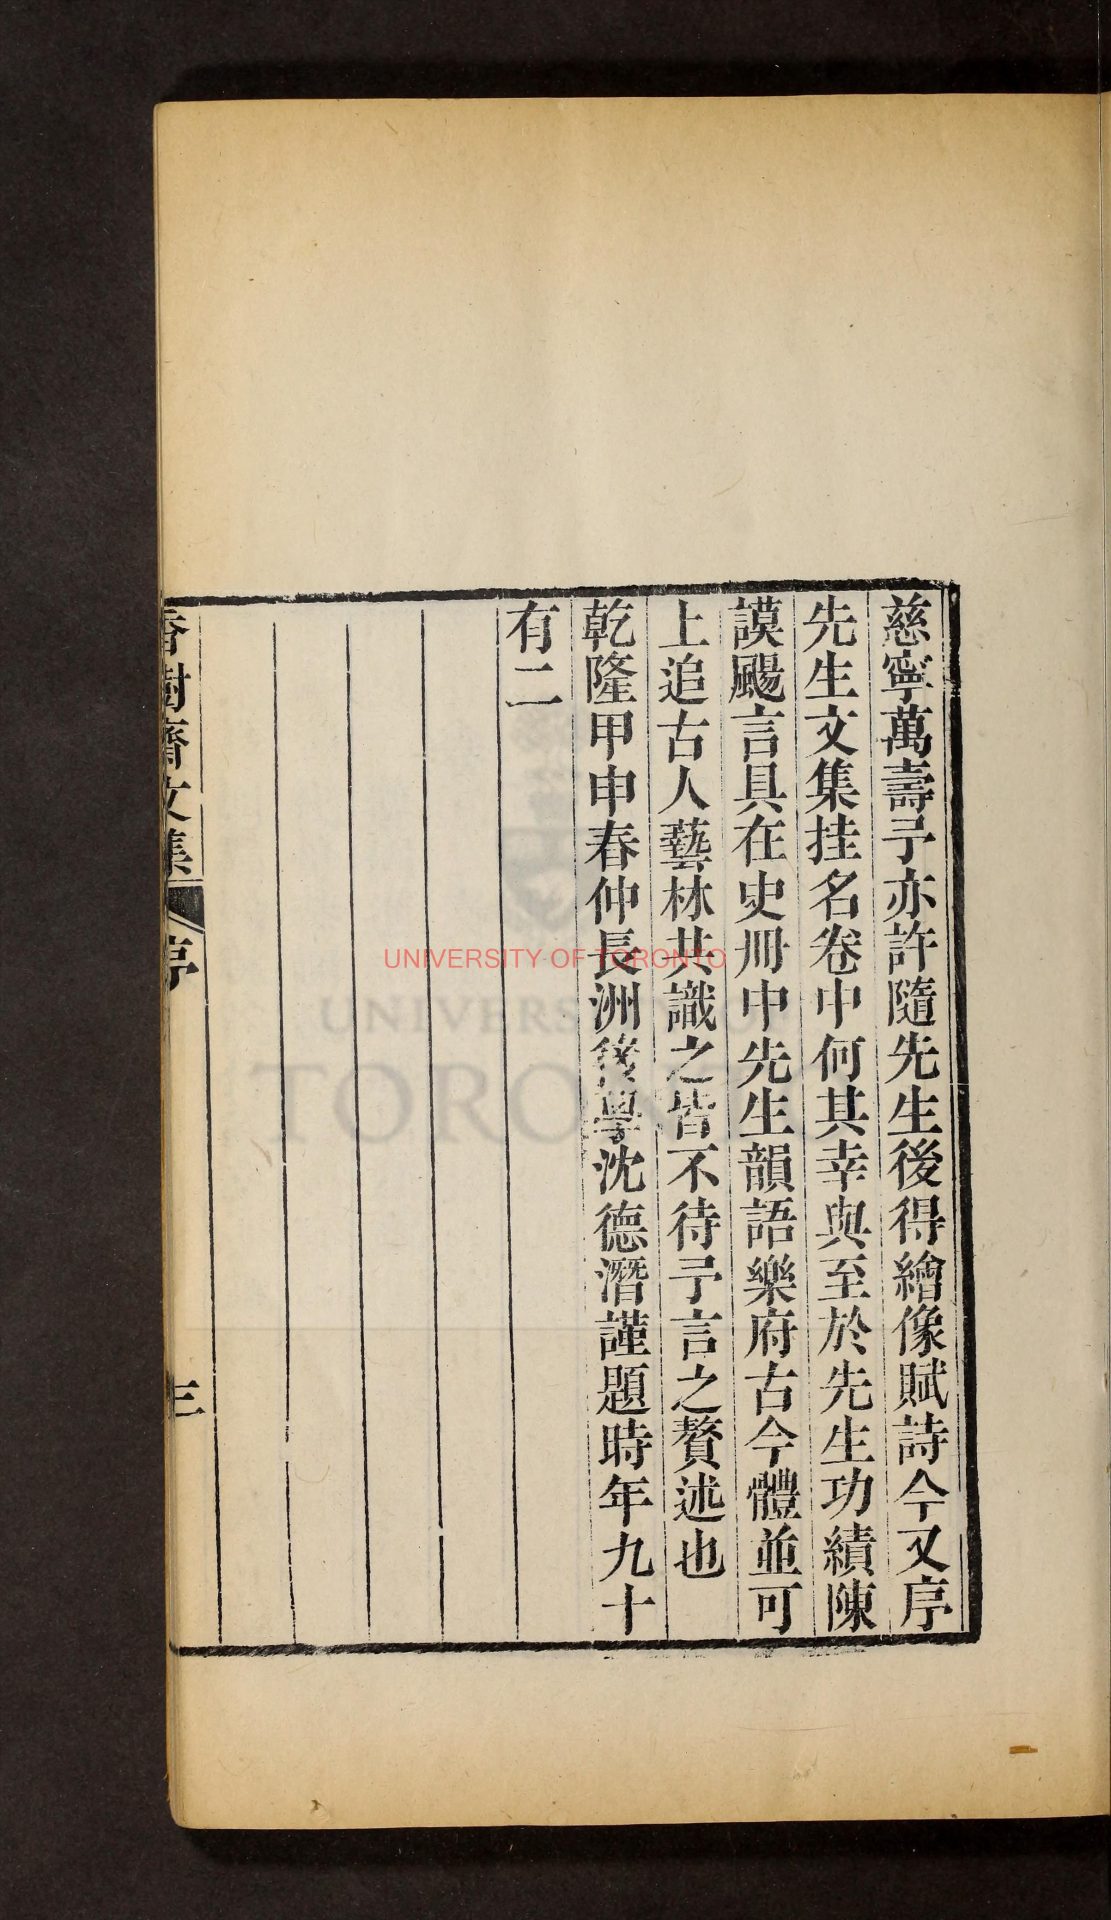 慈寧萬壽予亦許隨先生後得繪像賦詩今又序
先生文集挂名卷中何其幸與至於先生功績陳
謨颺言具在史冊中先生韻語樂府古今體並可
上追古人藝林共識之皆不待予言之贅述也
乾隆甲申春仲長洲後學沈德潛謹題時年九十
有二
香樹齋文集
序
三
UNIVERSITY OF TORONTO
UNIVERSITY OF
TORONTO